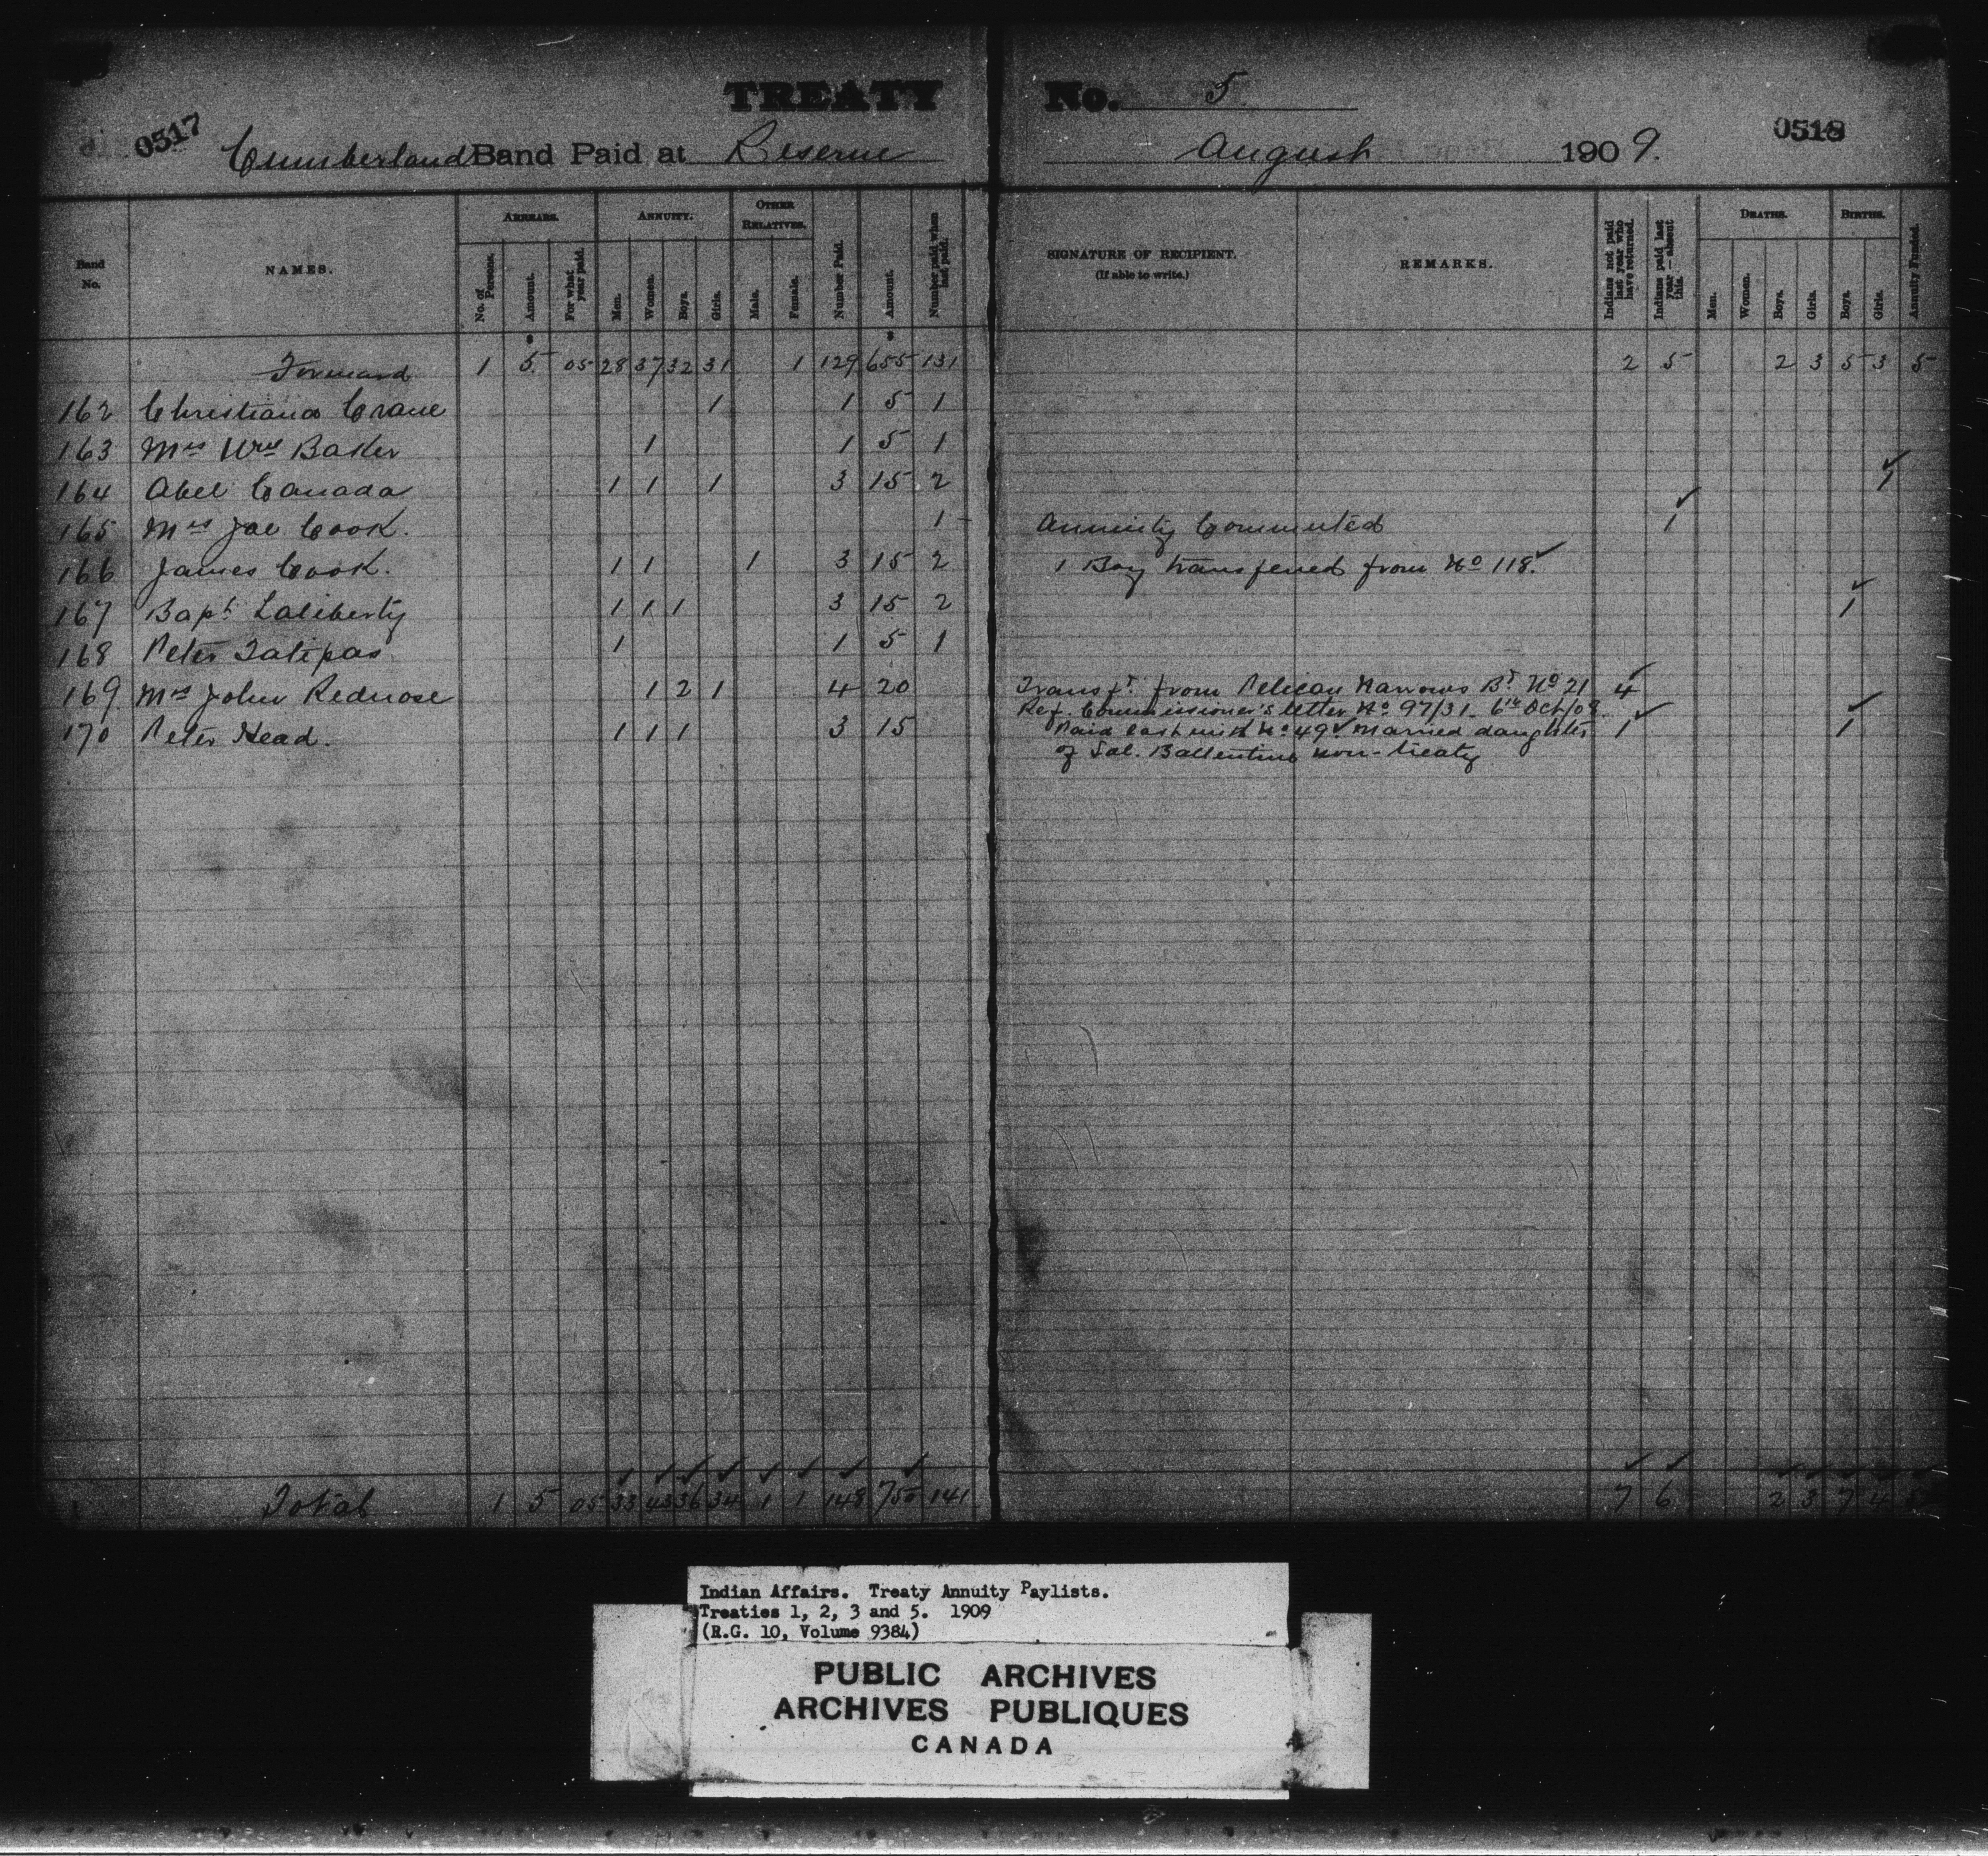 TREATY No. 5
0517 0518
Cumberland Band Paid at Reserve August 1909.
Band No. NAMES. ARREARS. ANNUITY. OTHER RELATIVES. Number Paid. Amount. Number paid when last paid. SIGNATURE OF RECIPIENT. (If able to write.) REMARKS. Indians not paid last year who have returned. Indians paid last year—absent this. DEATHS. BIRTHS. Annuity Funded.
No. of Persons. Amount. For what year paid. Men. Women. Boys. Girls. Male. Female. Men. Women. Boys. Girls. Boys. Girls.
$ $
Forward 1 5 05 28 37 32 31 1 129 655 131 2 5 2 3 5 3 5
162 Christiana Crane 1 1 5 1
163 Mrs Wm Baker 1 1 5 1
164 Abel Canada 1 1 1 3 15 2 ✓ 1
165 Mrs Joe Cook. 1 Annuity Commuted ✓ 1
166 James Cook. 1 1 1 3 15 2 1 Boy transferred from No 118. ✓
167 Bapt Laliberty 1 1 1 3 15 2 ✓ 1
168 Peter Tatipas 1 1 5 1
169 Mrs John Rednose 1 2 1 4 20 Transfd from Pelican Narrows Bd No 21 ✓ 4
Ref. Commissioner's letter No 97/31 6th Oct/08
170 Peter Head. 1 1 1 3 15 Paid last with No 49 ✓ Married daughter ✓ 1 ✓ 1
of Sal. Ballentine non-treaty
✓ ✓ ✓ ✓ ✓ ✓ ✓ ✓ ✓ ✓ ✓ ✓ ✓ ✓
Total 1 5 05 33 43 36 34 1 1 148 750 141 7 6 2 3 7 4
Indian Affairs. Treaty Annuity Paylists.
Treaties 1, 2, 3 and 5. 1909
(R.G. 10, Volume 9384)
PUBLIC ARCHIVES
ARCHIVES PUBLIQUES
CANADA